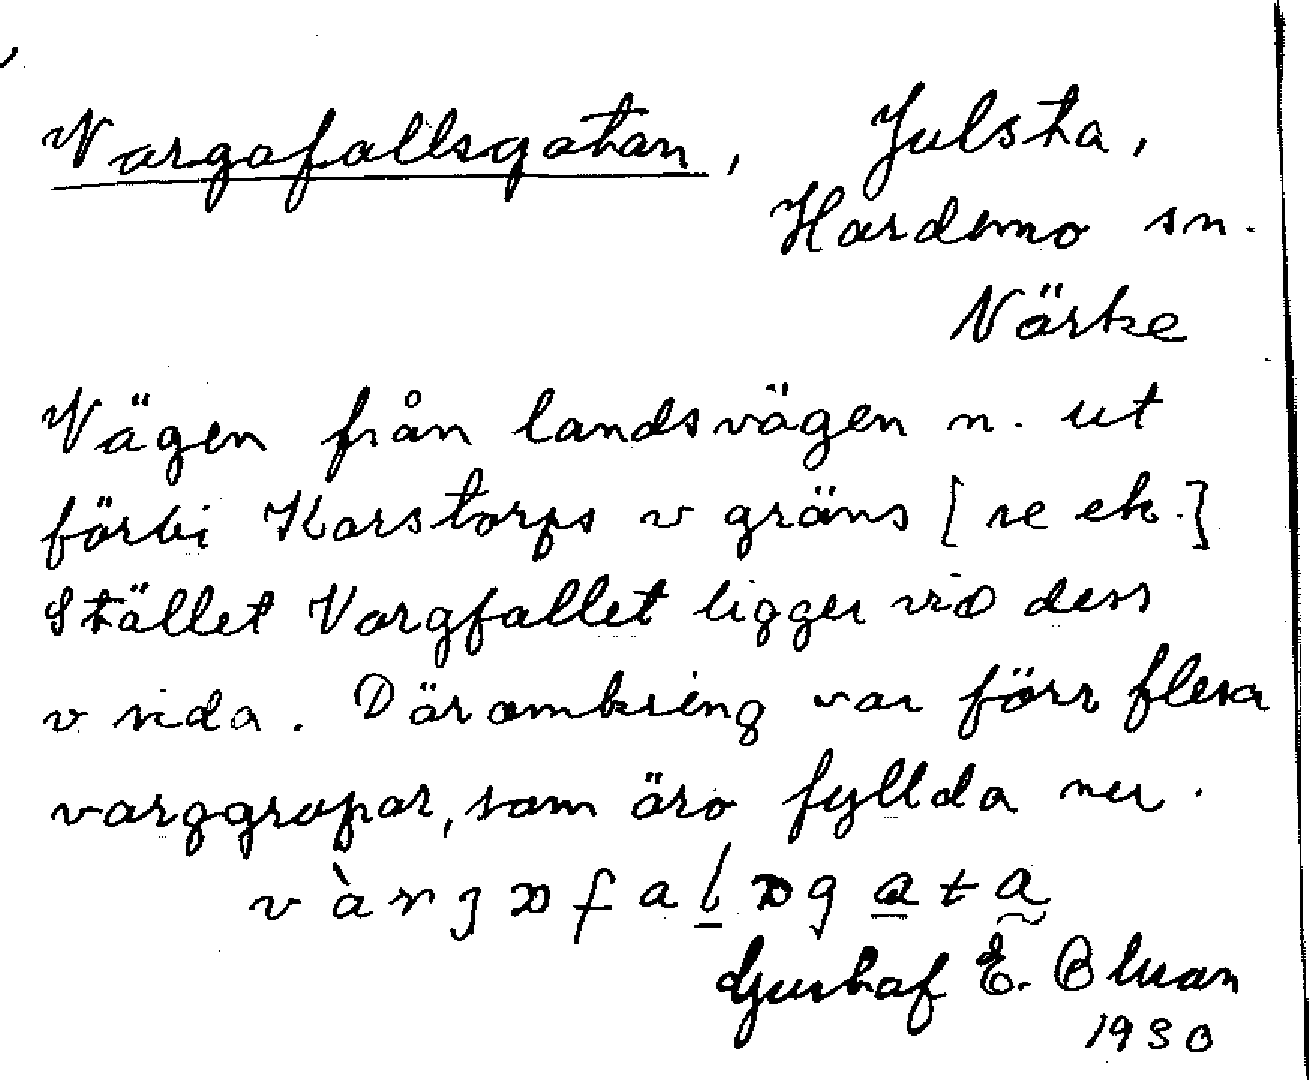 Vargafallsgatan, Julsta,
Hardemo sn.
Närke
Vägen från landsvägen n. ut
förbi Karstorps v gräns [se ek.]
Stället Vargfallet ligger vid dess
v sida. Däromkring var förr flera
varggropar, som äro fyllda nu.
Gustaf E. Olsson
1930